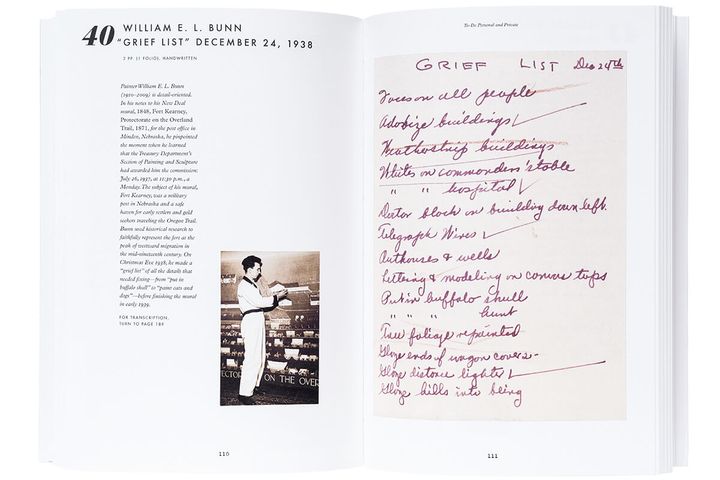 40 WILLIAM E. L. BUNN
"GRIEF LIST" DECEMBER 24, 1938
2 PP. (1 FOLIO), HANDWRITTEN
Painter William E. L. Bunn
(1910–2009) is detail-oriented.
In his notes to his New Deal
mural, 1848, Fort Kearney,
Protectorate on the Overland
Trail, 1871, for the post office in
Minden, Nebraska, he pinpointed
the moment when he learned
that the Treasury Department's
Section of Painting and Sculpture
had awarded him the commission:
July 26, 1937, at 11:30 p.m., a
Monday. The subject of his mural,
Fort Kearney, was a military
post in Nebraska and a safe
haven for early settlers and gold
seekers traveling the Oregon Trail.
Bunn used historical research to
faithfully represent the fort at the
peak of westward migration in
the mid-nineteenth century. On
Christmas Eve 1938, he made a
"grief list" of all the details that
needed fixing—from "put in
buffalo skull" to "paint cats and
dogs"—before finishing the mural
in early 1939.
FOR TRANSCRIPTION,
TURN TO PAGE 189
ON THE OVER
110
To-Do Personal and Private
GRIEF LIST Dec 24th
Focus on all people
Adobize buildings
Weatherstrip buildings
Whites on commanders' stable
" " hospital
block on building down left.
Telegraph Wires
Outhouses & wells
Lettering & modeling on canvas tops
Put in buffalo skull
" " " hunt
Tree foliage repainted
Glaze ends of wagon covers-
Glaze distance lighter
Glaze hills into being
111